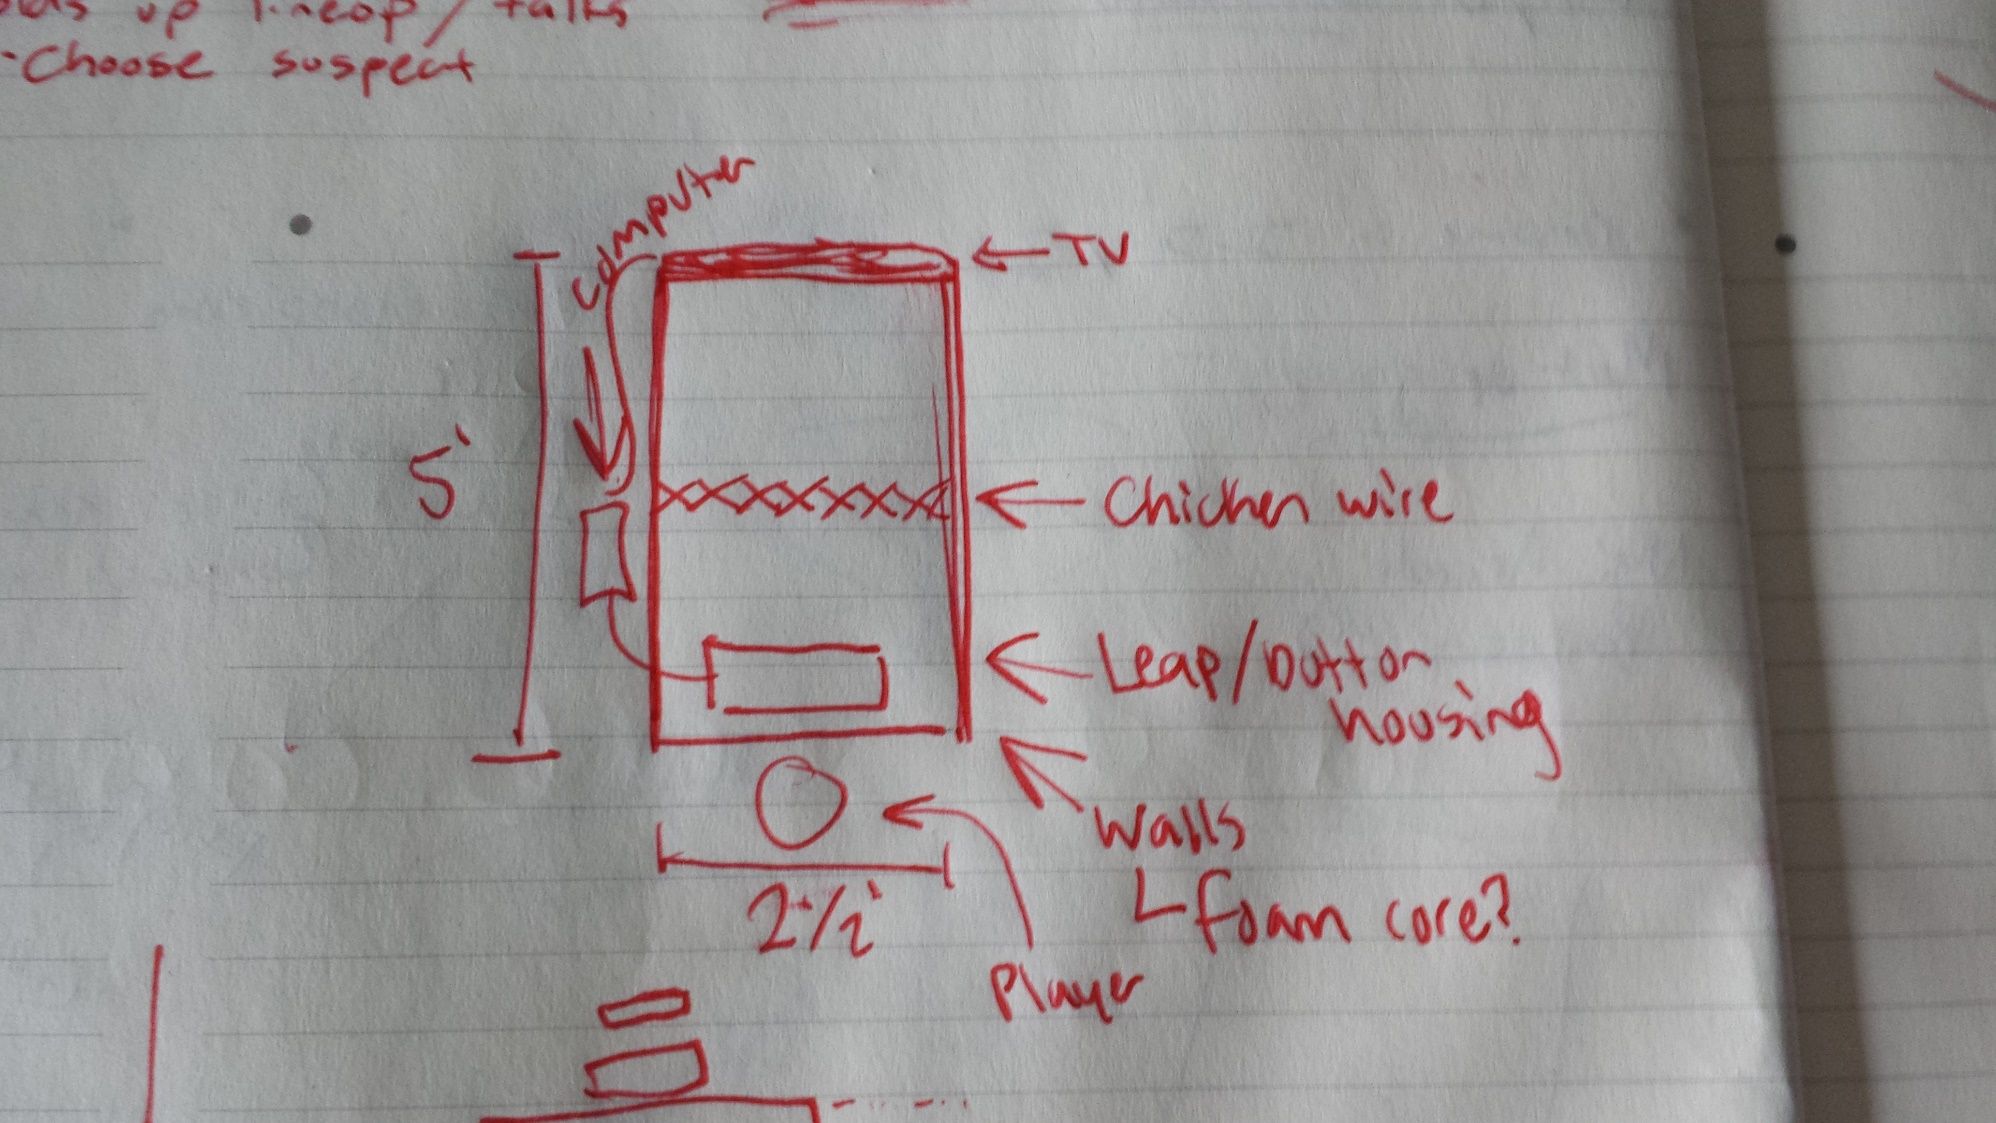 up lineop/talks
-Choose suspect
computer
TV
5'
Chicken wire
Leap/button
housing
Walls
foam core?
2 1/2'
Player